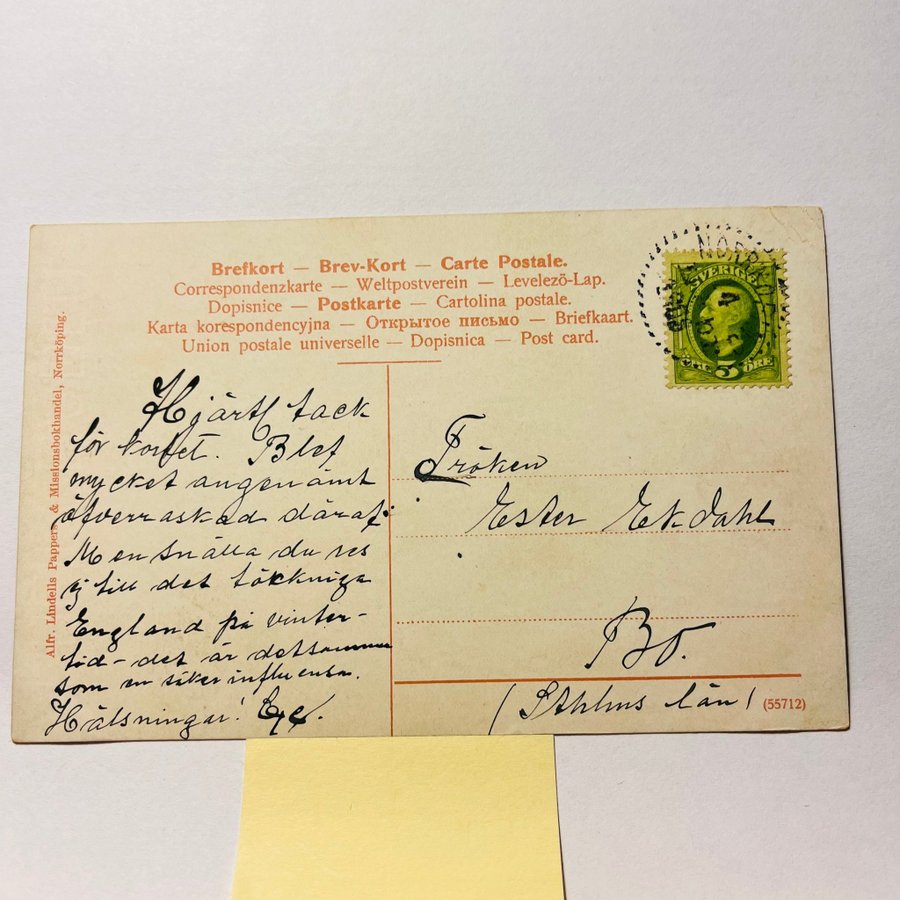 Brefkort — Brev-Kort — Carte Postale.
Correspondenzkarte — Weltpostverein — Levelezö-Lap.
Dopisnice — Postkarte — Cartolina postale.
Karta korespondencyjna — Открытое письмо — Briefkaart.
Union postale universelle — Dopisnica — Post card.
Alfr. Lindells Pappers- & Missionsbokhandel, Norrköping.
SVERIGE
5 ÖRE
Hjärtl tack
för kortet. Blef
mycket angenämt
öfverraskad däraf.
Men snälla du res
ej till det töckniga
England på vinter-
tid – det är detsamma
som en säker influensa.
Hälsningar!
Fröken
Ester Ekdahl
Bo.
(Sthlms län)
(55712)